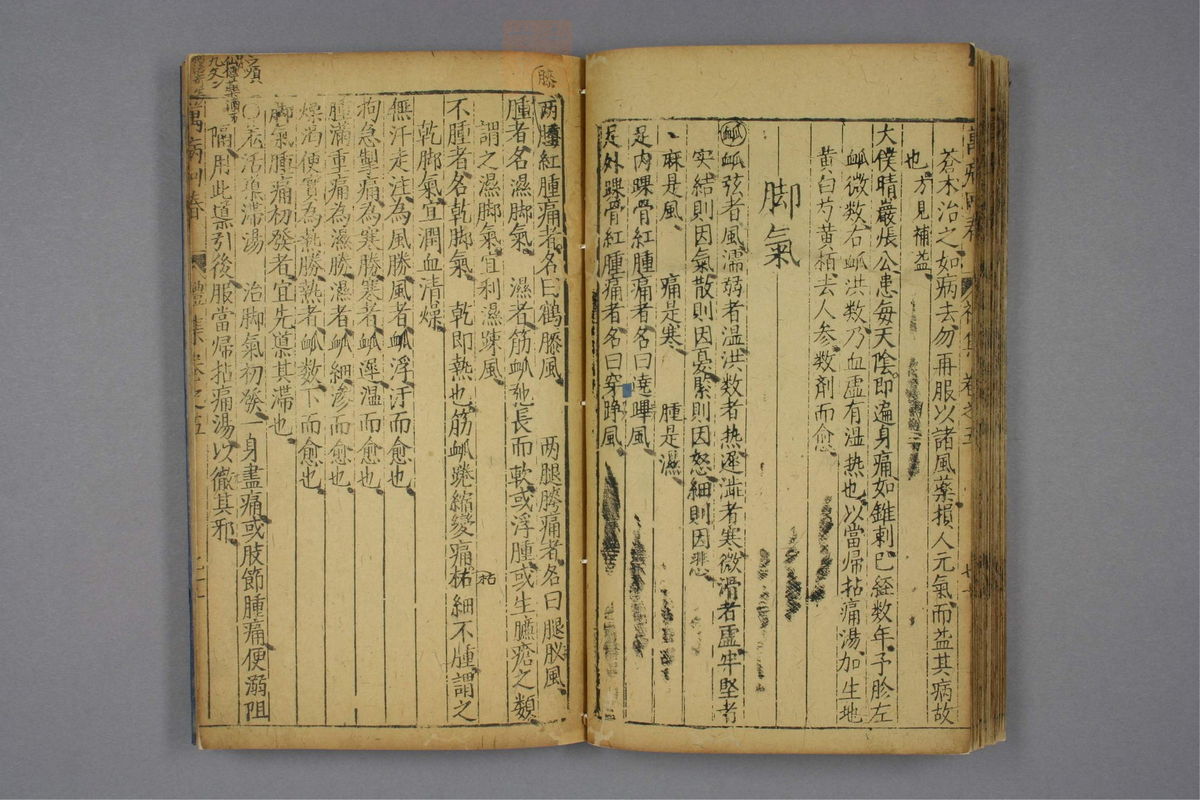 蒼朮治之如病去勿再服以諸風藥損人元氣而益其病故
也方見補益
大僕晴巖張公患每天陰即遍身痛如錐刺已經数年予胗左
䘑微数右䘑洪数乃血虛有湿热也以當歸拈痛湯加生地
黄白芍黄栢去人参数劑而愈
脚氣
䘑 䘑弦者風濡弱者温洪数者热遲澁者寒微滑者虛牢堅者
实結則因氣散則因憂緊則因怒細則因悲
麻是風 痛是寒 腫是濕
足内踝骨紅腫痛者名曰遶踭風
足外踝骨紅腫痛者名曰穿踭風
膝
两膝紅腫痛者名曰鶴膝風 两腿胯痛者名曰腿肞風
腫者名濕脚氣 濕者筋䘑弛長而軟或浮腫或生臁瘡之類
謂之濕脚氣宜利濕踈風
不腫者名乾脚氣 乾即熱也筋䘑踡縮孿痛枯細不腫謂之
乾脚氣宜潤血清燥
枯
無汗走注為風勝風者䘑浮汗而愈也
拘急掣痛為寒勝寒者䘑遲温而愈也
腫滿重痛為濕勝濕者䘑細渗而愈也
燥渴便實為熱勝熱者䘑数下而愈也
脚氣腫痛初發者宜先導其滞也
○羗活導滞湯 治脚氣初發一身盡痛或肢節腫痛便溺阻
隔用此導引後服當歸拈痛湯以徹其邪
萬病囬春 禮集卷之五